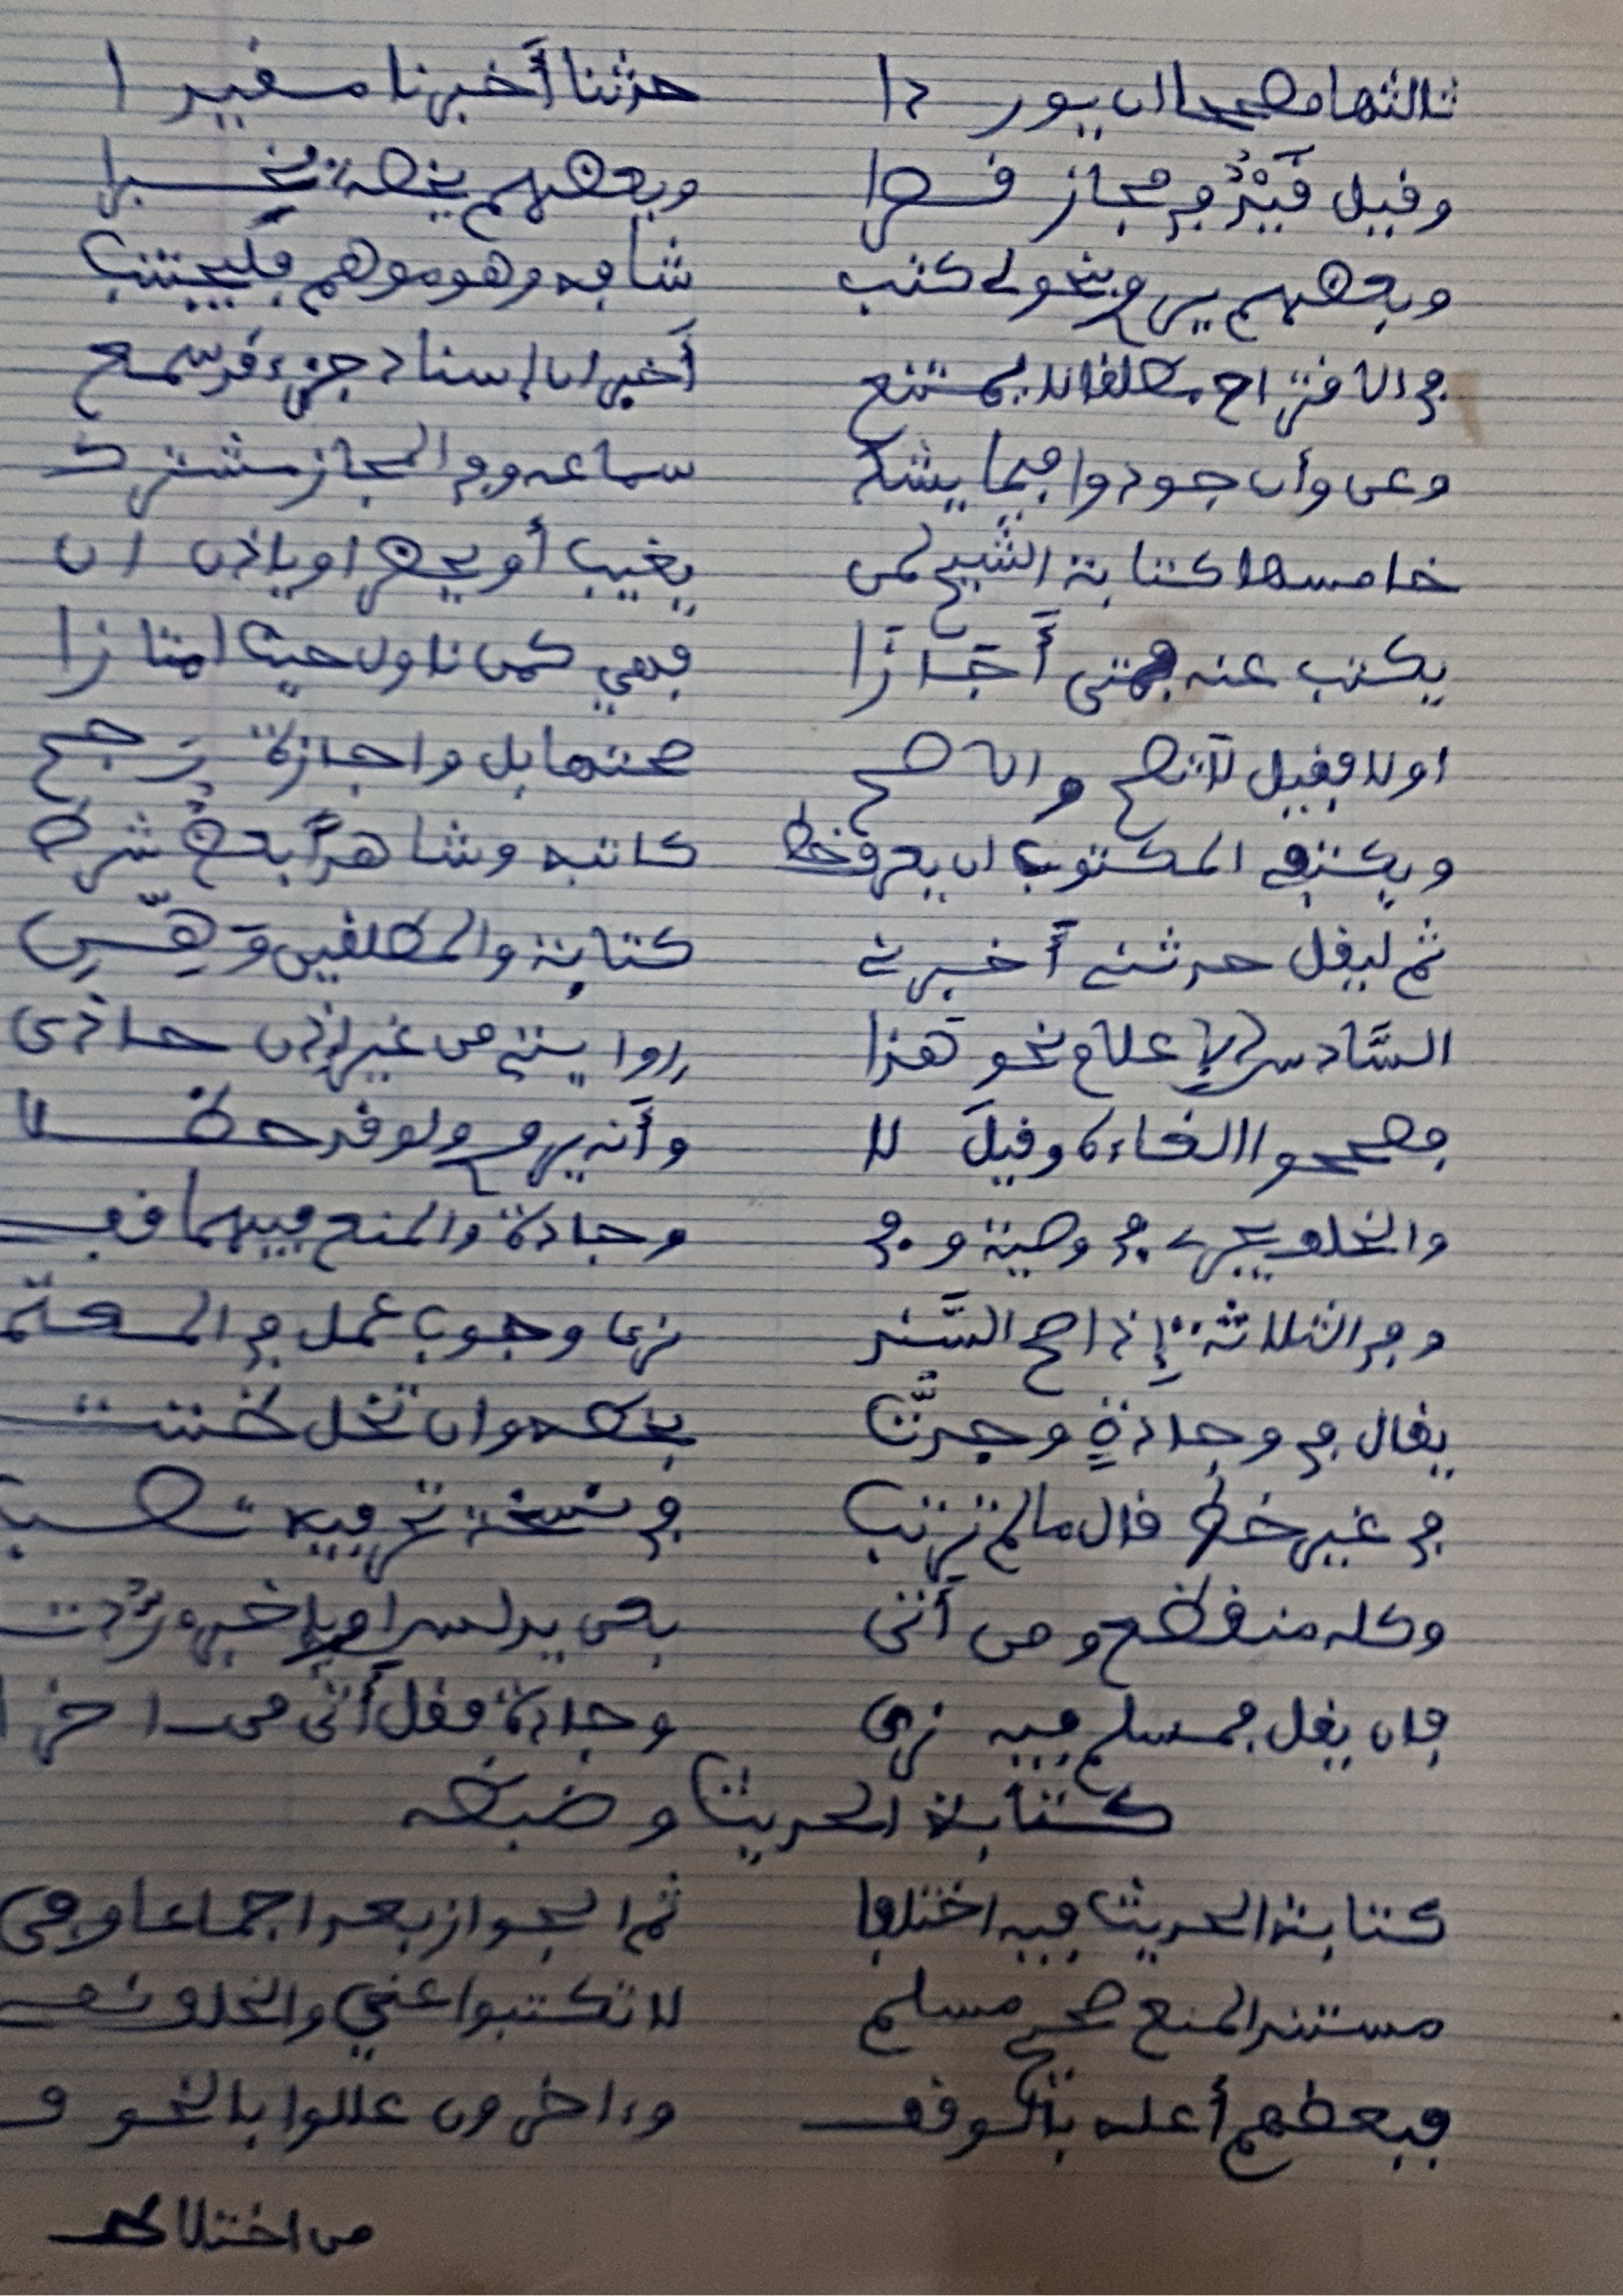 ثالثها مصححا ان يوردا حدثنا أخبرنا مقيدا
وقيل قَيْدُ في مجاز قصرا وبعضهم يخصه بخبرا
وبعضهم يروي بنحو لي كتب شافه وهو موهم فليجتنب
في الاقتراح مطلقا لا يمتنع أخبر ان إسناد جزء قد سمع
وعن وأن جودوا فيما يشك سماعه وفي المجاز مشترك
خامسها كتابة الشيخ لمن يغيب أو يحضر او ياذن ان
يكتب عنه فمتى أَجَازَا فهي كمن ناول حيث امتازا
او لا فقيل لا تصح والاصح صحتها بل واجازة رجح
ويكتفي المكتوب ان يعرف خط كاتبه وشاهداً بعضٌ شرط
ثم ليقل حدثني أخبرني كتابة والمطلقين وَهِّنِ
السَّادس الإعلام نحو هَذا روايتي من غير إذن حاذى
فصححوا الغاءه وقيلَ لا وأنه يروي ولو قد حظلا
والخلف يجري في وصية وفي وجادة والمنع فيهما قفي
وفي الثلاثة إذا صح السَّند نرى وجوب عمل في المعتمد
يقال في وجادةٍ وجدتُّ بخطه وان تخل ظننت
في غير خط قال ما لم ترتب في نسخة تحر فيه تصب
وكله منقطع ومن أتى بعن يدلس او بإخبره رُدت
فان يقل فمسلم فيه نرى وجادة فقل أتى من اخرا
كتابة الحديث وضبطه
كتابة الحديث فيه اختلفا ثم الجواز بعد اجماعا وفى
مستند المنع صحيح مسلم لا تكتبوا عني والخلف نمي
فبعظهم أعله بالوقف وءاخرون عللوا بالخوف
من اختلاط